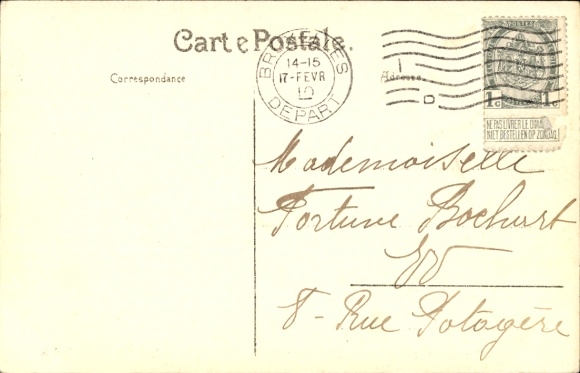 Carte Postale.
Correspondance
Adresse
BRUXELLES
14-15
17-FEVR
10
DEPART
1
D
POSTES
1c 1c
NE PAS LIVRER LE DIMANCHE
NIET BESTELLEN OP ZONDAG
Mademoiselle
Fortune Bochart
EV
8- Rue Potagère